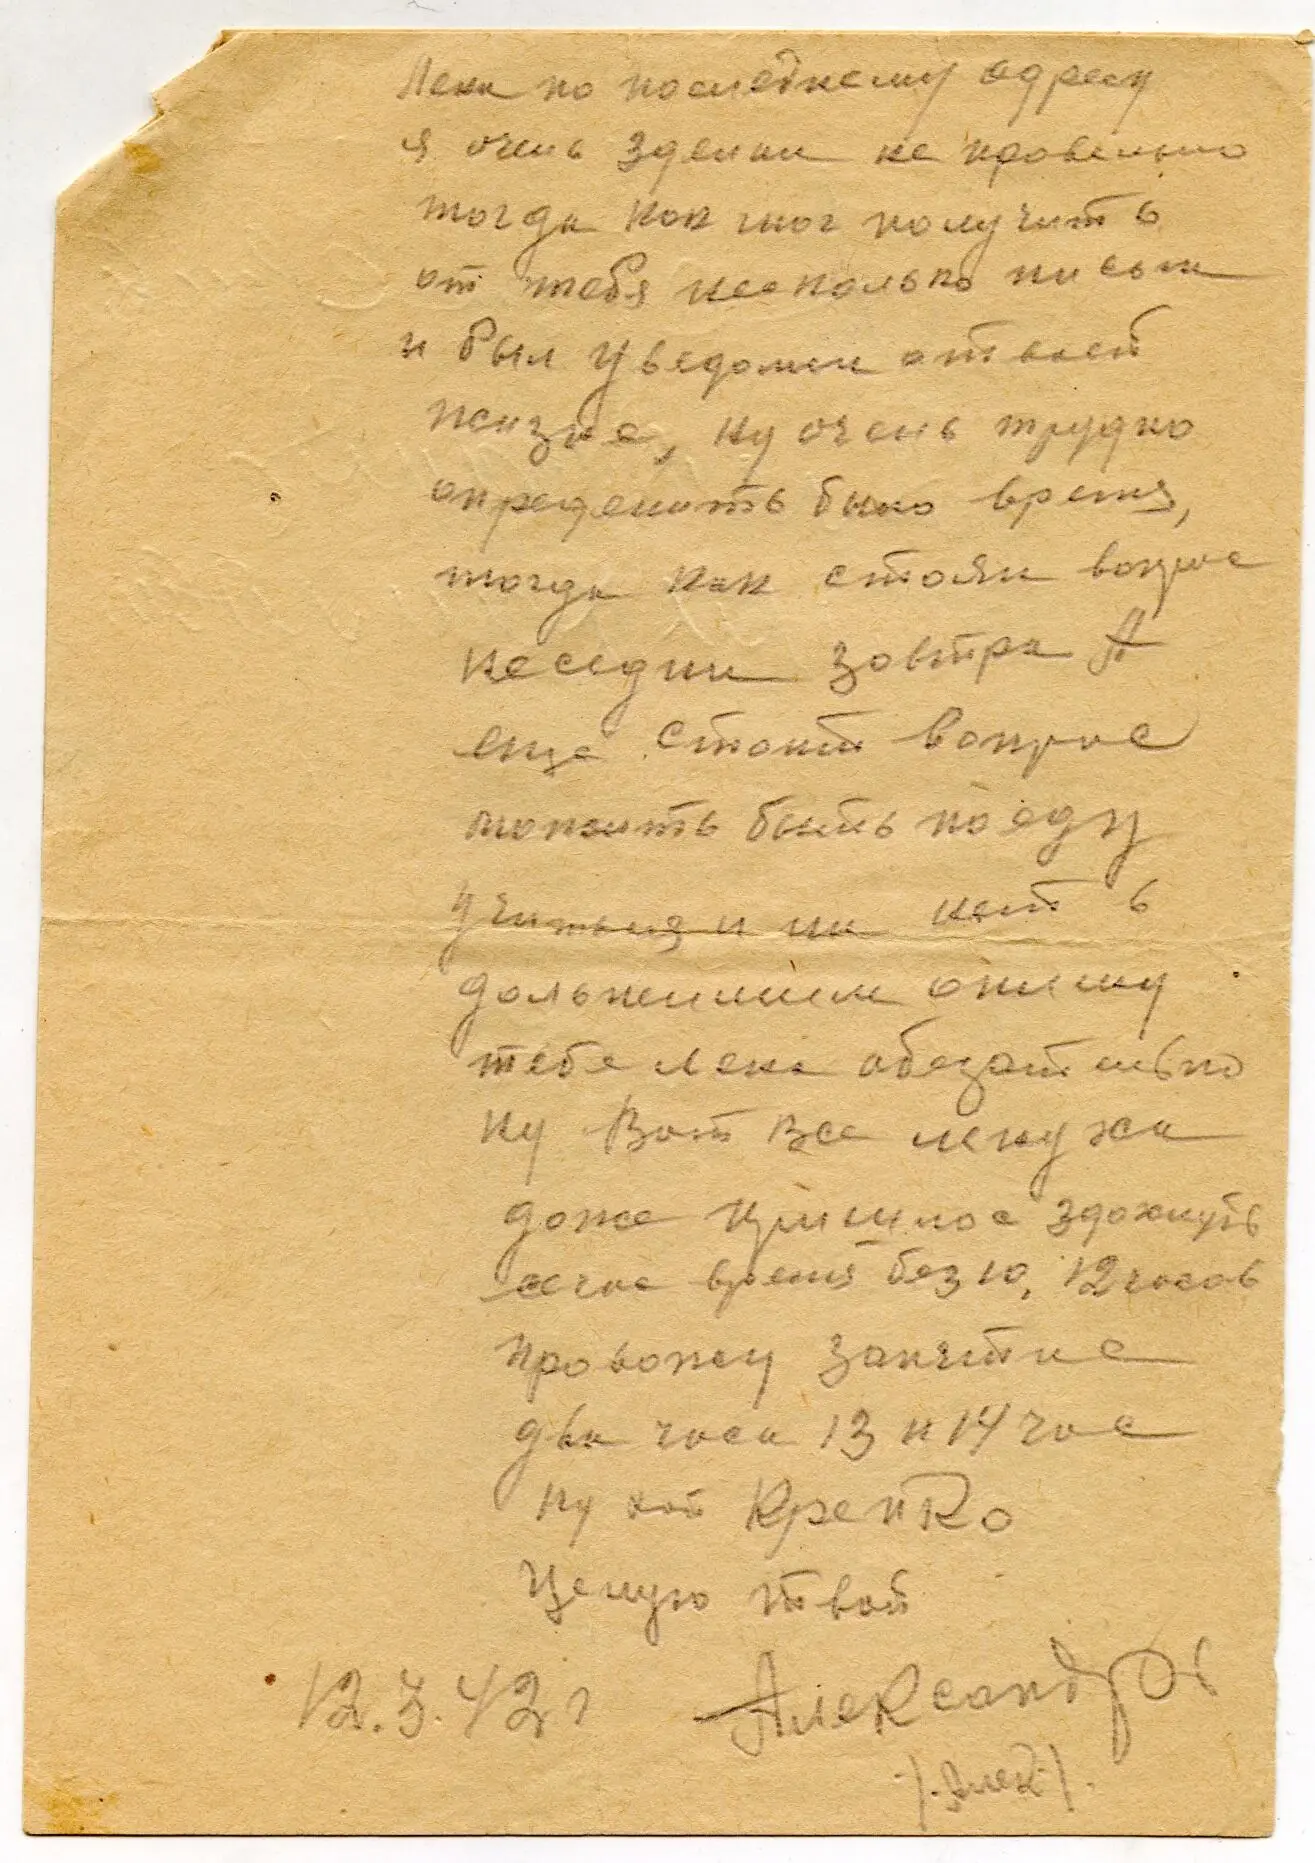 Лена по последнему адресу
я очень зделал не провельно
тогда как мог получить
от тебя несколько писем
и был уведомлен о твоей
жизне, ну очень трудно
определить было время,
тогда как стоял вопрос
неседни завтра А
еще стоит вопрос
можить быть поеду
учитьця и ли нет в
дольнейшем опишу
тебе лена обезательно
ну Вот все ленужа
доже пришлос здохнуть
сечас время без 10, 12 часов
провожу занятие
два часа 13 и 14 час
ну Крепко
Целую твой
12.3.42 г Александров
/.Алек./.